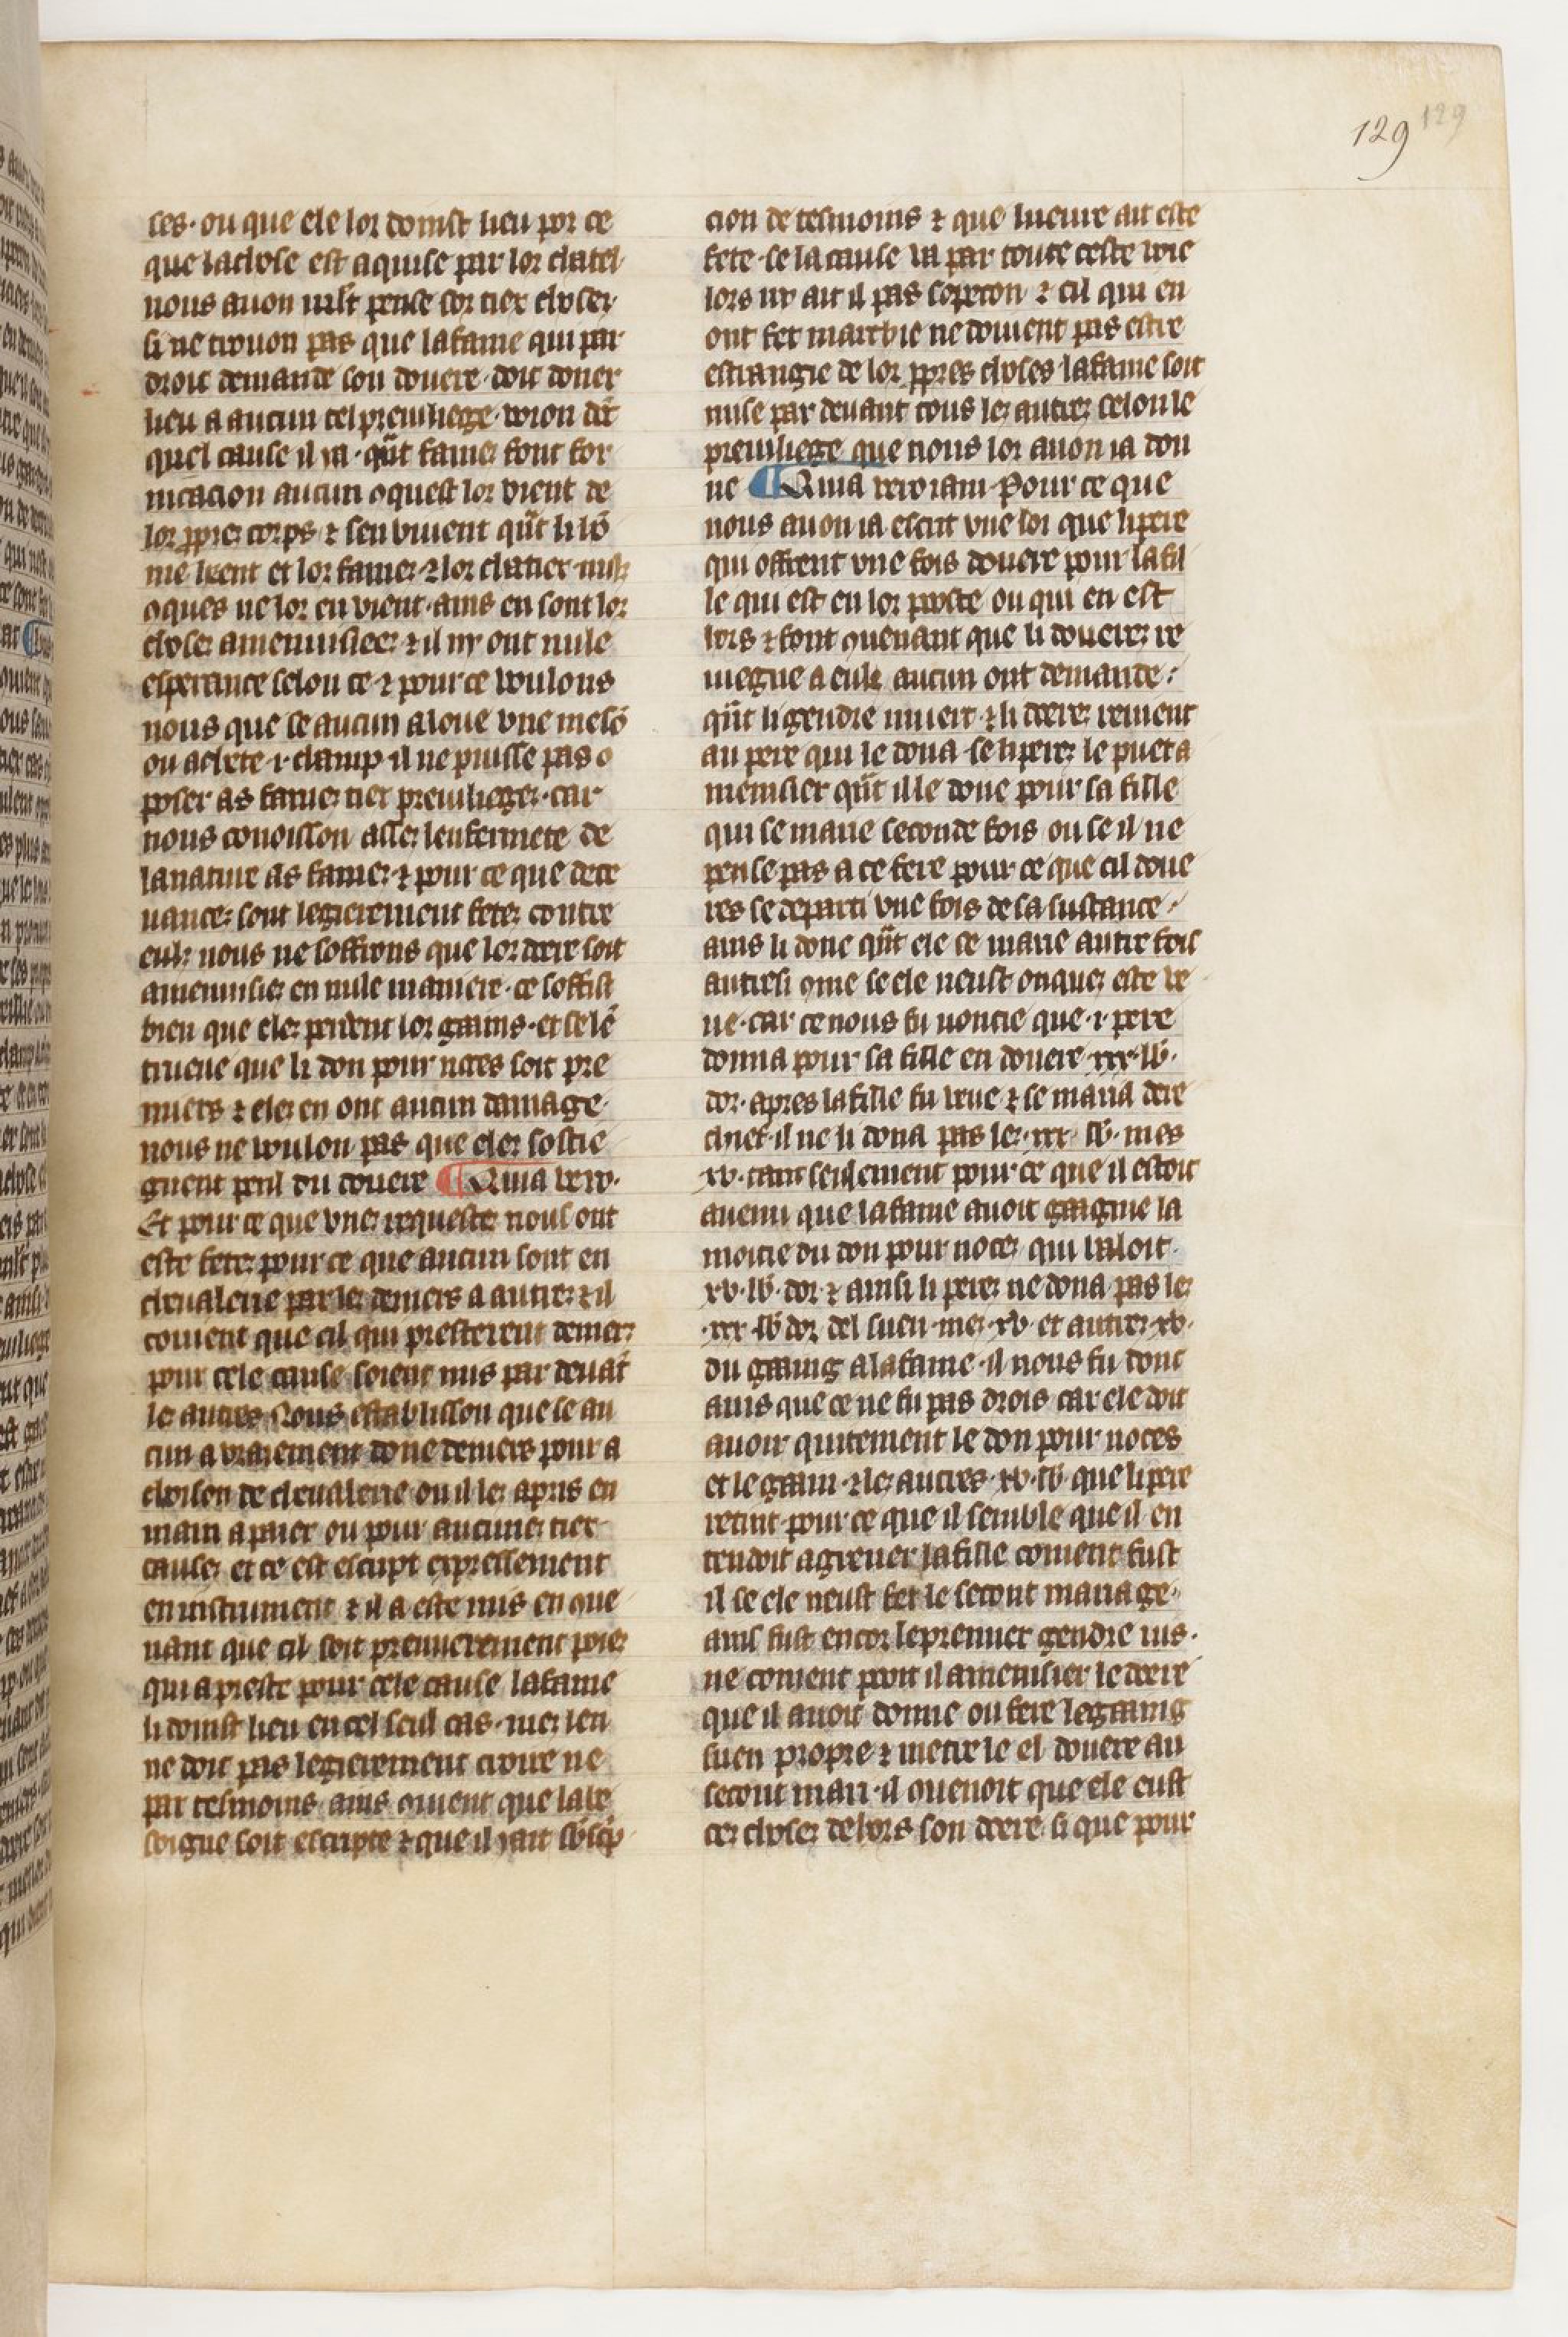 129 129
ces · ou que ele lor doinst lieu por ce
que la chose est aquise par lor chatel ·
nous auon mlt pense sor tiex choses ·
si ne trouon pas que la fame qui par
droit demande son douere · doit doner
lieu a aucun tel preuiliege · voion dōt
quel cause il i a · qūt fames font for
nicacion aucun oquest lor vient de
lor ꝓpres corps ⁊ sen viuent qūt li hō
me leent et lor fames ⁊ lor chatiex · nus
oques ne lor en vient · ains en sont lor
choses amenuisiees ⁊ il ny ont nule
esperance selon ce · ⁊ pour ce voulons
nous que se aucun a loue vne mesō
ou achete · i · champ · il ne puisse pas o
poser as fames tiex preuilieges · car
nous conoisson asses lenfermete de
la nature as fames ⁊ pour ce que dece
uances sont legierement fetes contre
euls nous ne soffrons que lor doere soit
amenuisies en nule maniere · ce soffist
bien que eles perdent lor gaains · et se lē
trueue que li don pour noces soit pre
miers ⁊ eles en ont aucun damage ·
nous ne voulon pas que eles sostie
gnent peril du douere ¶ Quia vero ·
Et pour ce que vnes requestes nous ont
este fetes pour ce que aucun sont en
cheualerie par les deniers a autres ⁊ il
couient que cil qui presterent deniers
pour cele cause soient mis par deuāt
les autres Nous establisson que se au
cun a vraiement done deniers pour a
choison de cheualerie ou il les a pris en
main a paier ou pour aucunes tiex
causes et ce est escript expressement
en instrument ⁊ il a este mis en oue
nant que cil soit premierement poies
qui a preste pour cele cause la fame
li doinst lieu en cel seul cas · mes len
ne doit pas legierement croire ne
par tesmoins · ains ouient que la be
soigne soit escripte ⁊ que il i ait sb̄scp̄
cion de tesmoins ⁊ que lueure ait este
fete · se la cause va par toute ceste voie
lors ny ait il pas sopecon ⁊ cil qui en
ont fet marchie ne doiuent pas estre
estrangie de lor ꝓpres choses · la fame soit
mise par deuant tous les autres celon le
preuiliege que nous lor auon ia don
ne ¶ Quia vero iam · Pour ce que
nous auon ia escrit vne loi que li pere
qui offrent vne fois douere pour la fil
le qui est en lor poste ou qui en est
hors ⁊ font ouenant que li doueres re
uiegne a euls aucun ont demande ·
qūt li gendre muert · ⁊ li doeres reuient
au pere qui le dona · se li peres le puet a
menusier qūt il le done pour sa fille
qui se marie seconde fois ou se il ne
pense pas a ce fere pour ce que cil doue
res se departi vne fois de sa sustance ·
ains li done qūt ele ce marie autre fois
autresi ome se ele neust onques este ve
ue · car ce nous fu noncie que · i · pere
donna pour sa fille en douere · xxx · lb̄ ·
dor · apres la fille fu veue ⁊ se maria dere
chief · il ne li dona pas les · xxx · lb̄ · mes
xv · tant seulement pour ce que il estoit
auenu que la fame auoit gaagnie la
moitie du don pour noces qui valoit ·
xv · lb̄ · dor · ⁊ ainsi li peres ne dona pas les
· xxx · lb̄ dor del suen · mes · xv · et autres · xv ·
du gaaing a la fame · il nous fu dont
auis que ce ne fu pas drois · car ele doit
auoir quitement le don pour noces
et le gaain · ⁊ les autres · xv · lb̄ · que li pere
retint · pour ce que il semble que il en
tendoit a greuer la fille coment fust
il se ele neust fet le secont mariage ·
ains fust encor le premier gendre uis ·
ne coment poroit il amenisier le doere
que il auoit donne ou fere le gaaing
suen propre ⁊ metre le el douere au
secont mari · il ouenoit que ele eust
ces choses dehors son doere · si que pour